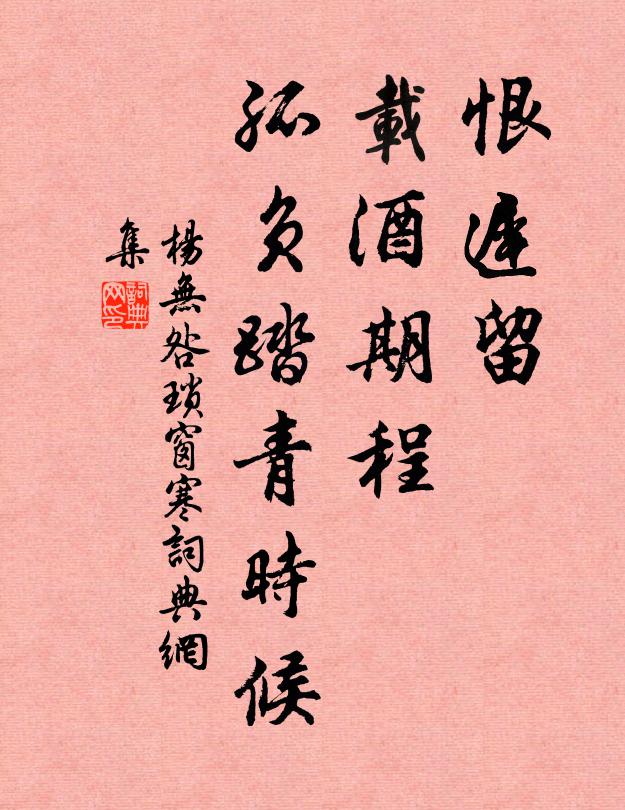 恨遲留
載酒期程
孤負踏青時候
楊無咎瑣窗寒詞典網
集
詞典
网印